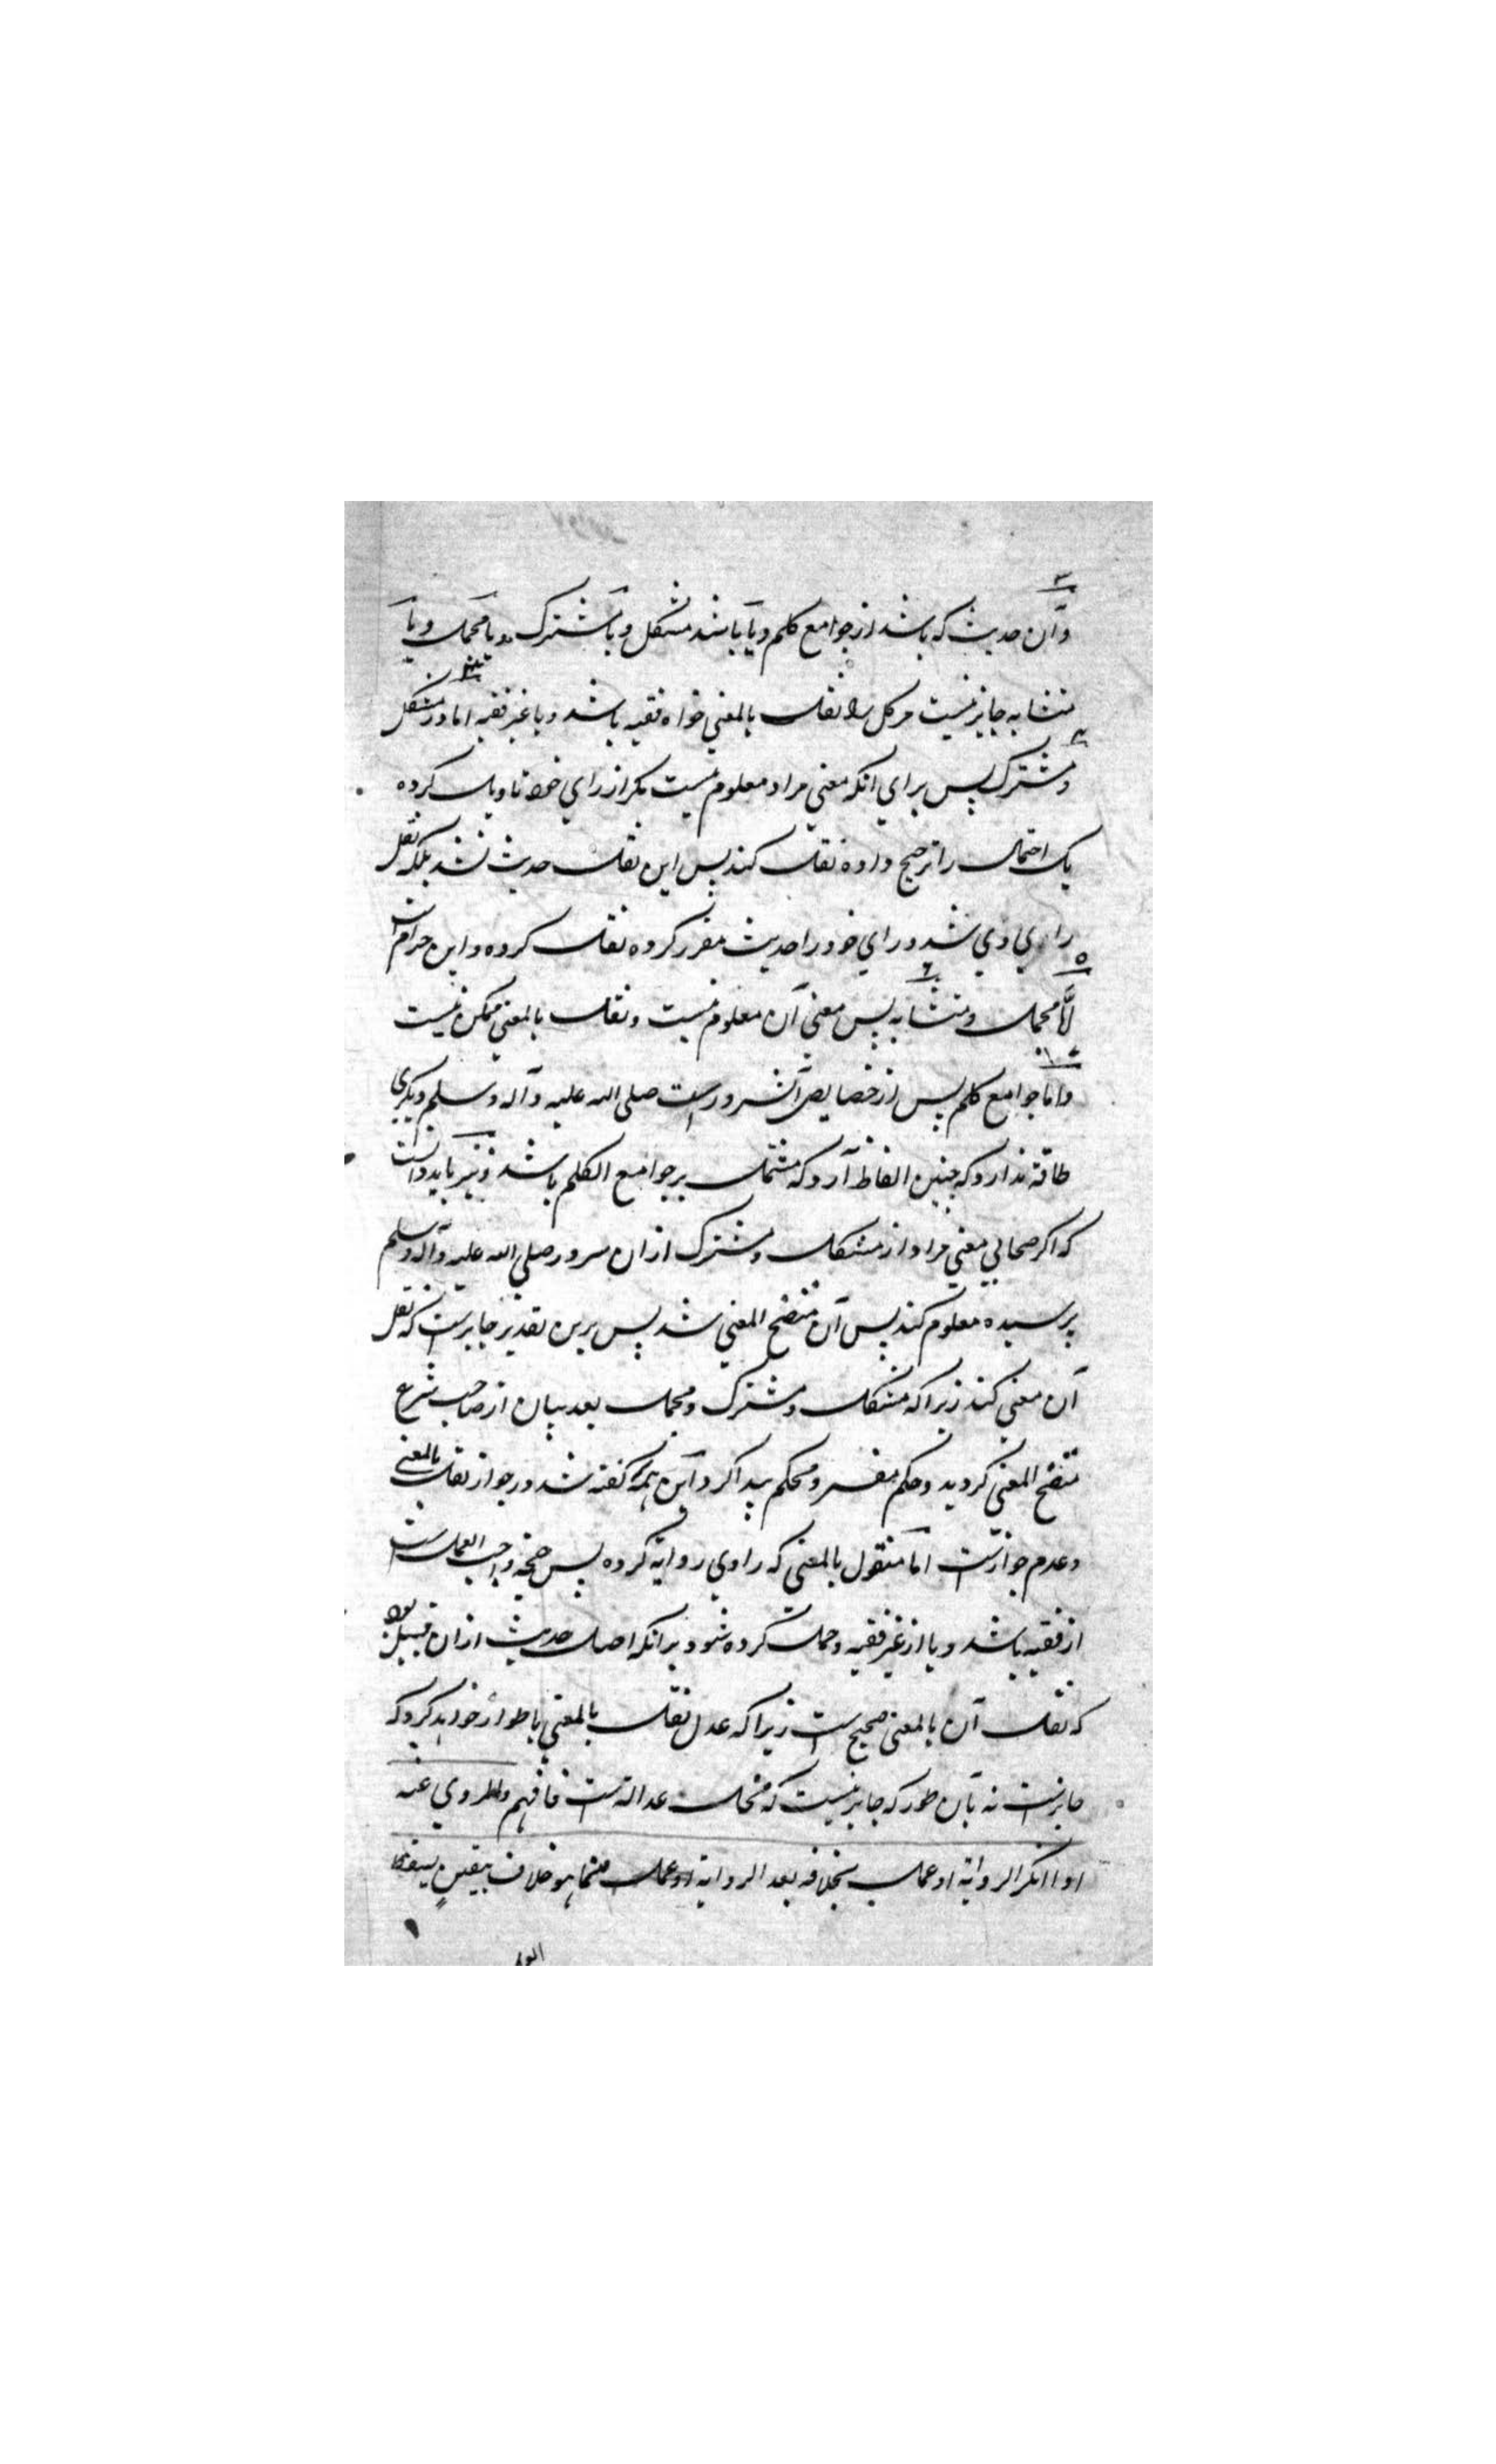 وآن حدیث که باشد از جوامع کلم ویا باشد مشکل ویا مشترک ویا مجمل ویا
متشابه جایز نیست مر کل را نقل بالمعنی خواه فقیه باشد ویا غیر فقیه اما در مشکل
ومشترک پس برای انکه معنی مراد معلوم نیست مکر از رای خود تاویل کرده
یک احتمال را ترجیح داده نقل کند پس این نقل حدیث نشد بلکه نقل
رای وی شد ورای خود را حدیث مقرر کرده نقل کرده واین حرام است
اما مجمل ومتشابه پس معنی آن معلوم نیست ونقل بالمعنی ممکن نیست
واما جوامع کلم پس از خصایص آنسرورست صلی الله علیه وآله وسلم ودیکری
طاقة ندارد که چنین الفاظ آرد که مشتمل بر جوامع الکلم باشد ونیز باید دانست
که اکر صحابی معنی مراد از مشکل ومشترک ازان سرور صلی الله علیه وآله وسلم
پرسیده معلوم کند پس آن متضح المعنی شد پس برین تقدیر جایزست که نقل
آن معنی کند زیرا که مشکل ومشترک ومجمل بعد بیان از صاحب شرع
متضح المعنی کردید وحکم مفسر ومحکم پیدا کرد این همه کفته شد در جواز نقل بالمعنی
وعدم جوازست اما منقول بالمعنی که راوی روایة کرده پس حجة واجب العمل است
از فقیه باشد ویا از غیر فقیه وحمل کرده شود برانکه اصل حدیث ازان قبیل بود
که نقل آن بالمعنی صحیح است زیرا که عدل نقل بالمعنی باطوار خواهد کرد که
جایزست نه بآن طور که جایز نیست که مخل عدالتست فافهم والمروی عنه
اذا انکر الروایة او عمل بخلافه بعد الروایة مما هو خلاف بیقین یسقط
العمل